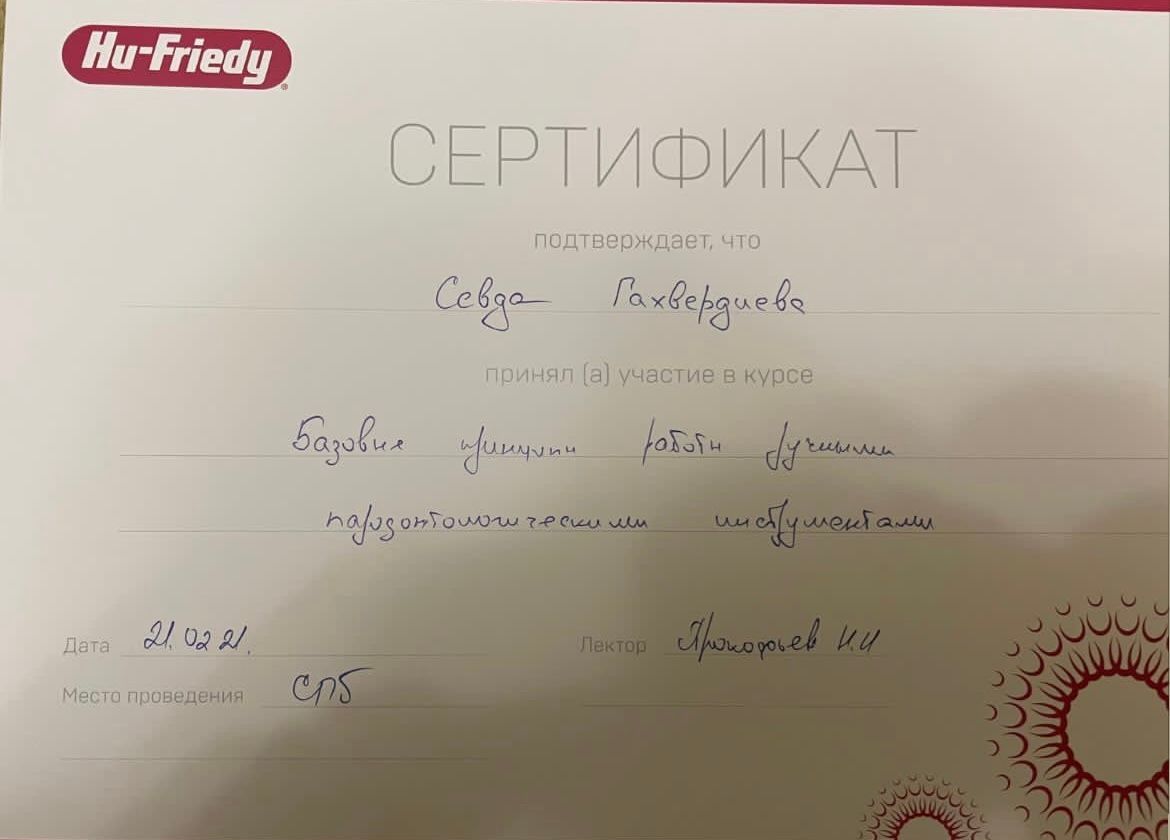 Hu-Friedy®
СЕРТИФИКАТ
подтверждает, что
Севда Гахвердиева
принял (а) участие в курсе
Базовые принципы работы ручными
пародонтологическими инструментами
Дата 21.02 21.
Лектор Прокофьев И.И
Место проведения СПб